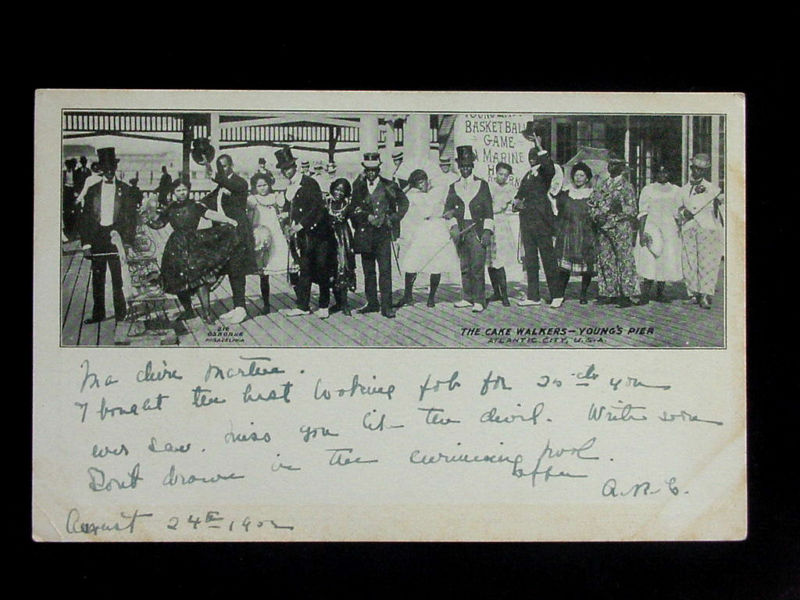 YOUNG'S PIER
BASKET BALL
GAME
MARINE
216
OSBORNE
PHILADELPHIA
THE CAKE WALKERS—YOUNG'S PIER
ATLANTIC CITY, U.S.A.
Ma chère
I bought the best looking fob for 20 cts you
ever saw. Miss you like the devil. Write soon
Don't drown in the swimming pool.
A.R.C.
August 24th 1902